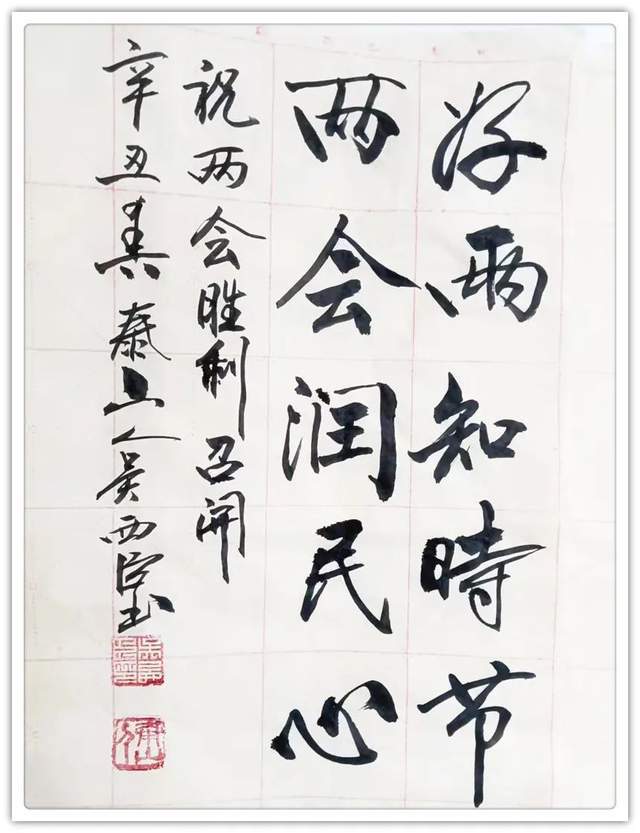 好雨知時节
两会润民心
祝两会胜利召开
辛丑春泰山人吴西宝